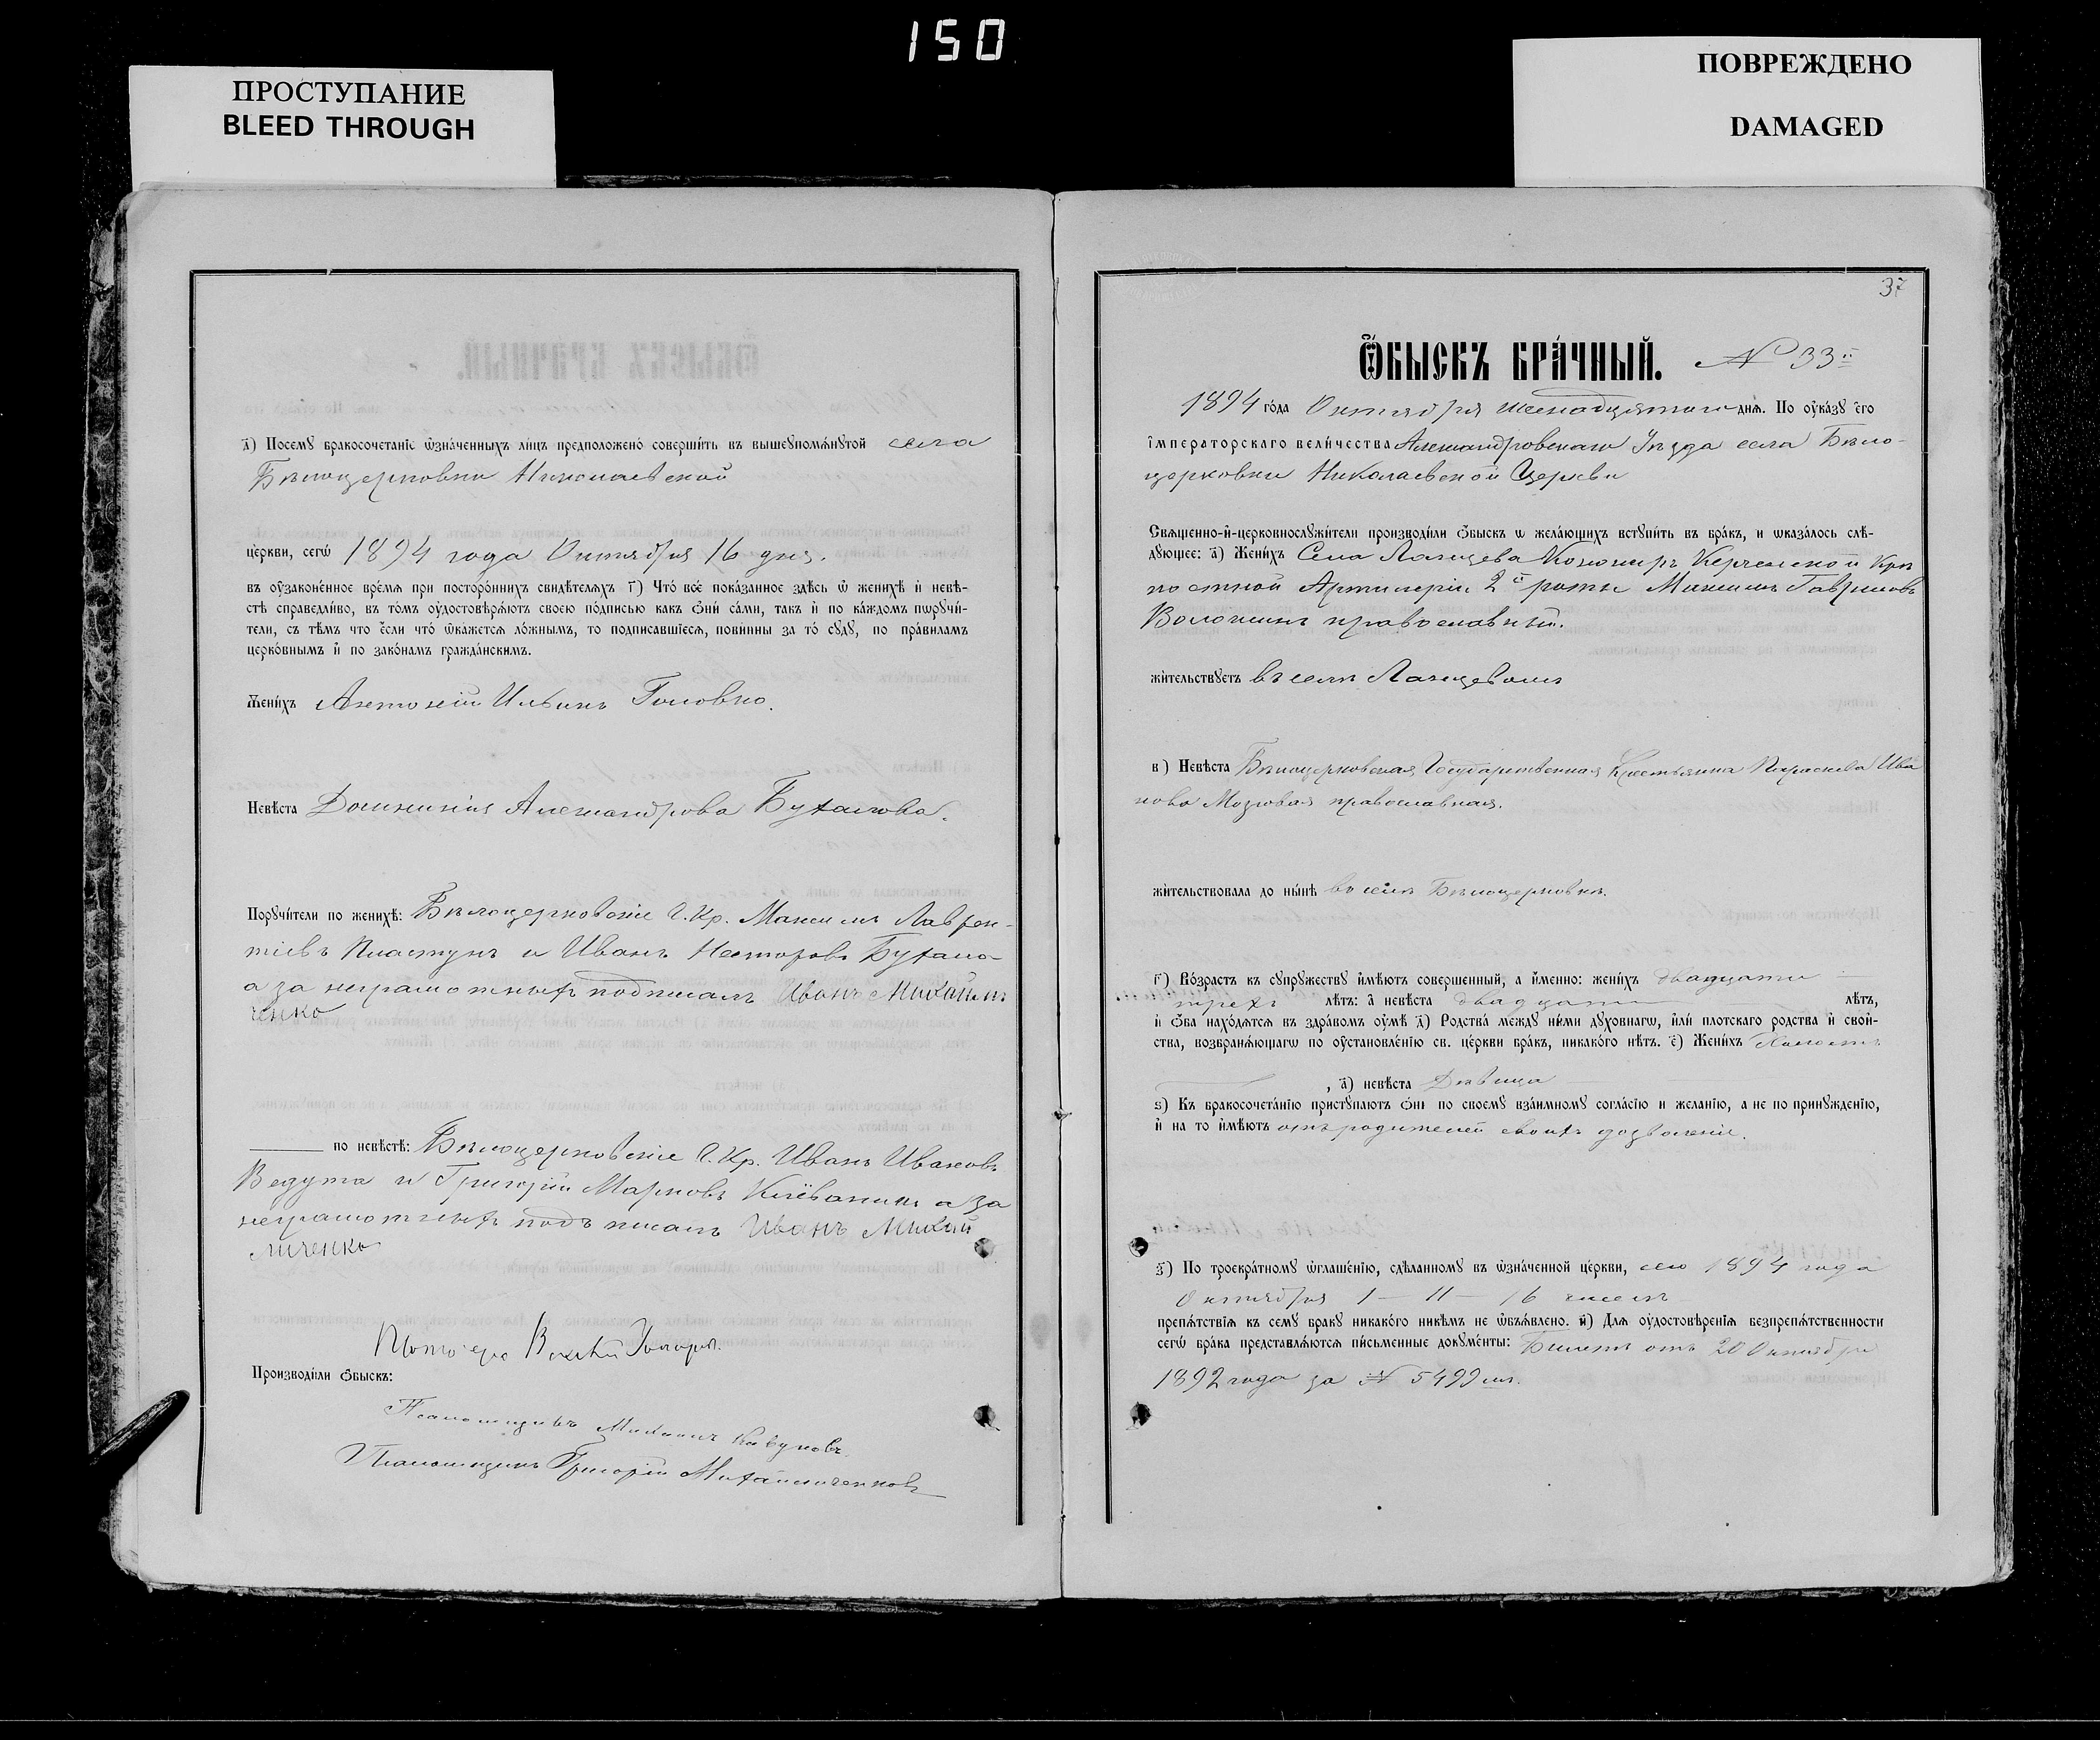 150
ПРОСТУПАНИЕ
BLEED THROUGH
ПОВРЕЖДЕНО
DAMAGED
д҃) Посемꙋ бракосочетаніе ѡзнáченныхъ ли́цъ предположенó совершíть въ вышеꙋпомѧ́нꙋтой села
Бѣлоцерковки Николаевской
це́ркви, сегѡ̀ 1894 года Октября 16 дня.
въ оу҆зако́не́нное вре́мѧ при посторо́ннихъ свидѣтелѧхъ г҃) Чтó всѐ пока́занное здѣсь ѡ҆ женихѣ̀ и҆ невѣ-
стѣ справедли́во, въ то́мъ оу҆достовѣрѧ́ютъ своею по́дписью какъ ѻ҆ни̑ са́ми, такъ и҆ по ка́ждомъ пѡрꙋчи́-
тели, съ тѣ́мъ что є҆сли что́ ѿка́жетсѧ ло́жнымъ, то подписавшїесѧ, пови́нны за то́ сꙋдꙋ, по пра́виламъ
церко́внымъ и҆ по зако́намъ гражда́нскимъ.
Жени́хъ Антоній Ильинъ Головко.
Невѣста Домникія Александрова Бухалова.
Порꙋчи́тели по женихѣ̀: Бѣлоцерковскіе Г. Кр. Максимъ Лаврен-
тіевъ Пластунъ и Иванъ Несторовъ Бухало
а за неграмотныхъ подписалъ Иванъ Михайли
ченко
по невѣстѣ: Бѣлоцерковскіе Г. Кр. Иванъ Ивановъ
Ведута и Григорій Марковъ Кіевашинъ а за
неграмотныхъ подъ писалъ Иванъ Михай
личенко
Производи́ли ѻ҆быскъ:
Псаломщикъ Михаилъ Кавуновъ
Псаломщикъ Григорій Михайличенковъ
37
Ѻ҆БЫСКЪ БРА́ЧНЫЙ. № 33й
1894 го́да Октября шестнадцатаго днѧ. По оу҆ка́зꙋ є҆гѡ̀
і҆мператорскаго вели́чества Александровскаго Уѣзда села Бѣло-
церковки Николаевской Церкви
Свѧщенно-и҆-церковнослꙋжи́тели производи́ли ѻ҆быскъ ѡ жела́ющихъ встꙋпи́ть въ бра́къ, и ѡказа́лось слѣ́-
дꙋющее: а҃) Жени́хъ Села Канониръ Керченской Крѣ
постной Артилеріи 2й роты Максимъ Гавриловъ
Волошинъ православный.
жи́тельствꙋетъ въ селѣ
в҃) Невѣста Бѣлоцерковская Государственная Крестьянка Параскева Ива
нова Мозговая православная.
жи́тельствовала до ны́нѣ въ селѣ Бѣлоцерковкѣ.
г҃) Во́зрастъ къ сꙋпрꙋжествꙋ и҆мѣ́ютъ совершенный, а и҆́менно: жени́хъ двадцати
трехъ лѣтъ: а҆ невѣста двадцати лѣтъ,
и҆ ѻ҆́ба нахо́дѧтсѧ въ здра́вомъ оу҆мѣ̀ д҃) Родства̀ междꙋ ни́ми дꙋхо́внагѡ, и҆лѝ плотска́го родства и҆ свой-
ства, возбранѧ́ющагѡ по оу҆становле́нїю св. це́ркви бра́къ, никако́го нѣтъ. є҃) Жени́хъ Холостъ
, а҃) невѣста Дѣвица
ѕ҃) Къ бракосочета́нїю пристꙋпа́ютъ ѻ҆ни̑ по своемꙋ вза́имномꙋ согла́сїю и жела́нїю, а не по принꙋжде́нїю,
и҆ на то и҆мѣ́ютъ отъ родителей своихъ дозволеніе.
з҃) По троекра́тномꙋ ѡ҆глаше́нїю, сдѣ́ланномꙋ въ ѡ҆зна́ченной це́ркви, сего 1894 года
Октября 1 — 11 — 16 числъ
препѧ́тствїѧ къ семꙋ бракꙋ никако́го никѣ́мъ не ѡ҆бъѧ́влено. и҃) Длѧ оу҆достовѣ́ренїѧ безпрепѧ́тственности
сегѡ̀ бра́ка представлѧ́ютсѧ пи́сьменные докꙋме́нты: Билетъ отъ 20 Октября
1892 года за № 5499мъ.